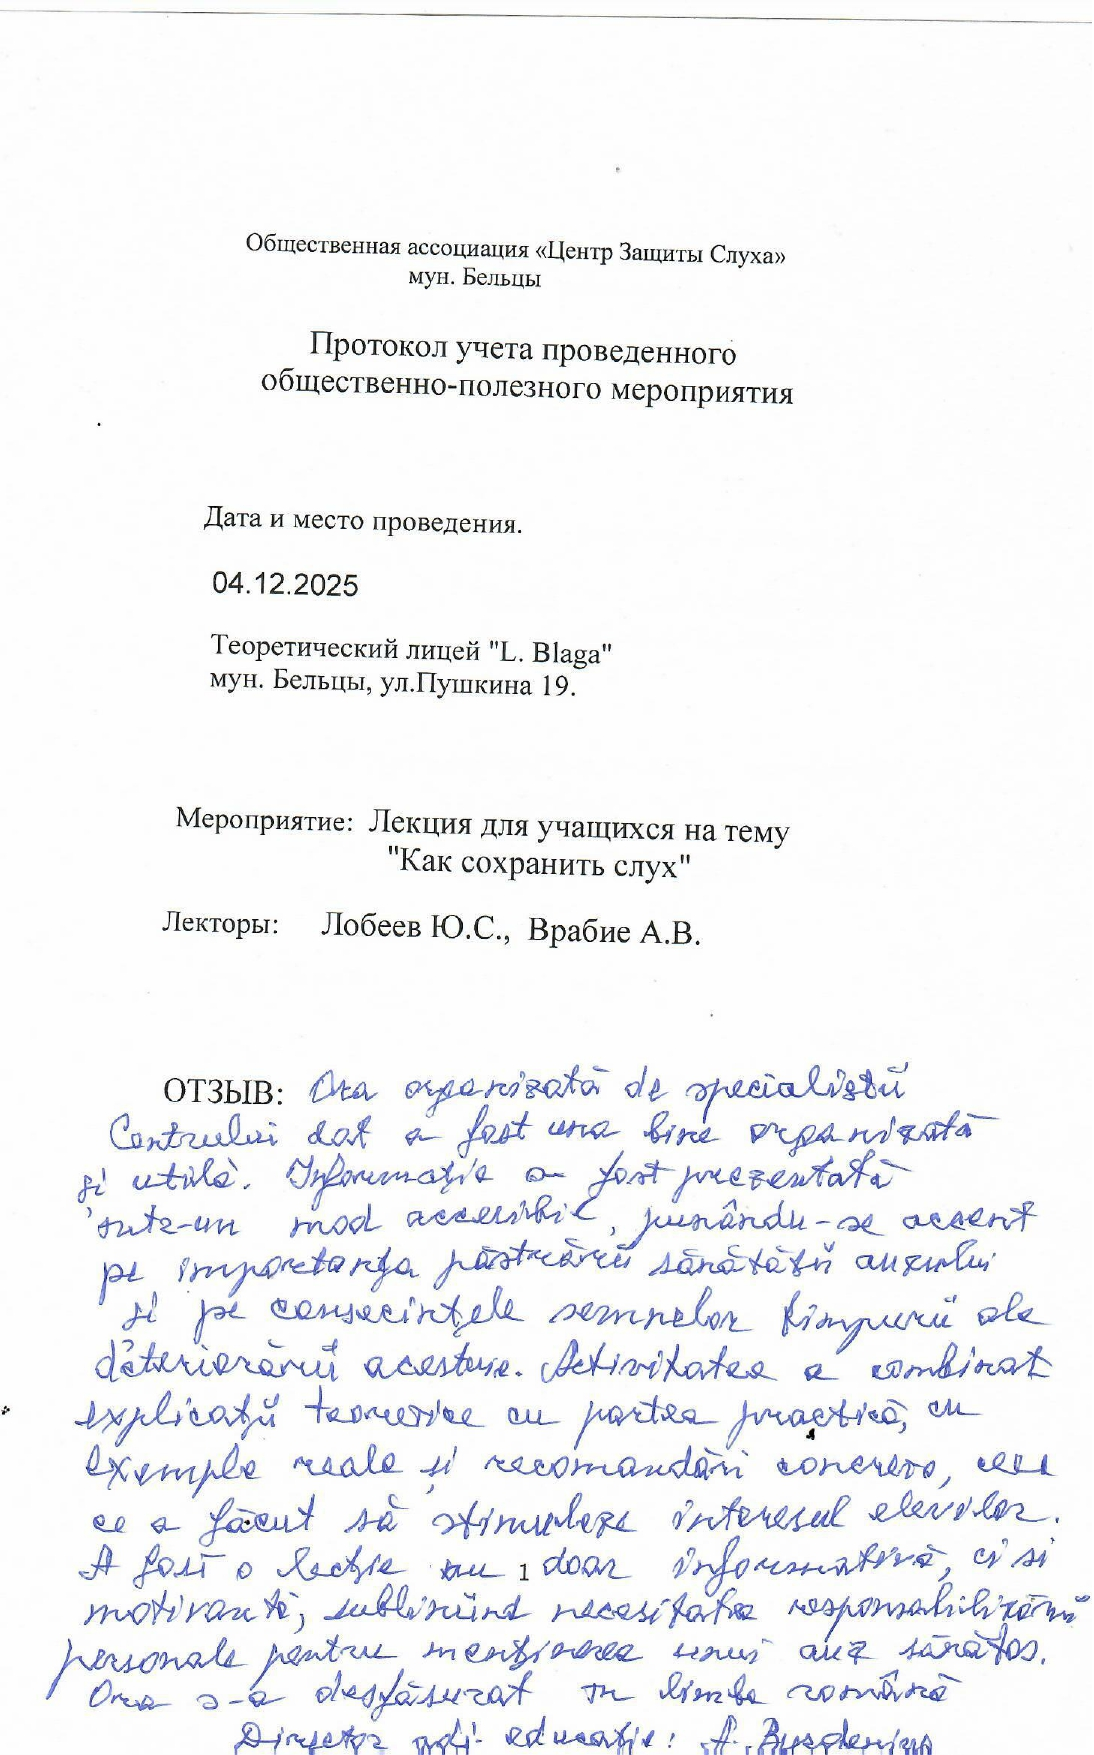 Общественная ассоциация «Центр Защиты Слуха»
мун. Бельцы
Протокол учета проведенного
общественно-полезного мероприятия
Дата и место проведения.
04.12.2025
Теоретический лицей "L. Blaga"
мун. Бельцы, ул.Пушкина 19.
Мероприятие: Лекция для учащихся на тему
"Как сохранить слух"
Лекторы: Лобеев Ю.С., Врабие А.В.
ОТЗЫВ: Ora organizată de specialiștii
Centrului dat a fost una bine organizată
și utilă. Informația a fost prezentată
într-un mod accesibil, punându-se accent
pe importanța păstrării sănătății auzului
și pe consecințele semnelor timpurii ale
deteriorării acestuia. Activitatea a combinat
explicații teoretice cu partea practică, cu
exemple reale și recomandări concrete, ceea
ce a făcut să stimuleze interesul elevilor.
A fost o lecție nu 1 doar informativă, ci si
motivantă, subliniind necesitatea responsabilizării
personale pentru menținerea unui auz sănătos.
Ora s-a desfășurat în limba română
Director adj. educație: A.